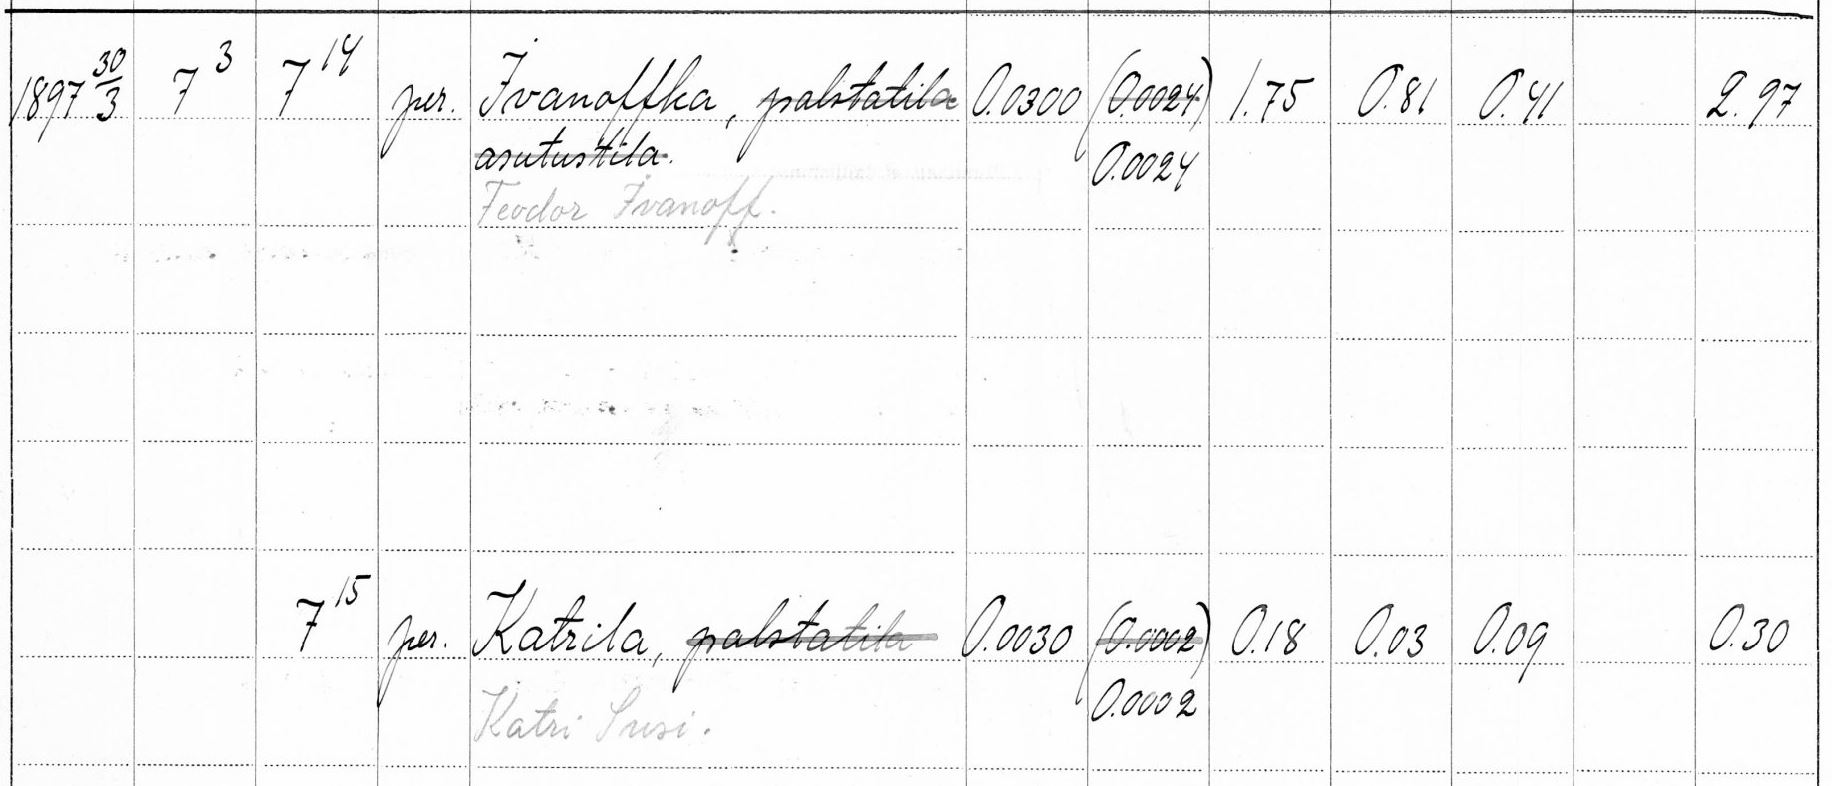 1897 30/3 7³ 7¹⁴ per. Ivanoffka, palstatila 0.0300 (0.0024) 1.75 0.81 0.41 2.97
asutustila. 0.0024
Teodor Ivanoff.
7¹⁵ per. Katrila, palstatila 0.0030 (0.0002) 0.18 0.03 0.09 0.30
Katri Susi. 0.0002